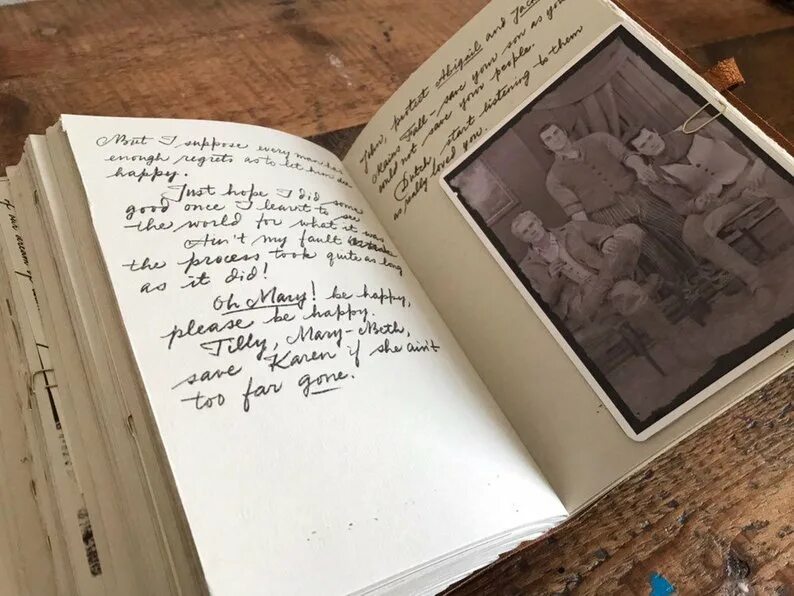 But I suppose every man has
enough regrets as to let him die
happy.
Just hope I did some
good once I learnt to see
the world for what it was
Ain't my fault
the process took quite as long
as it did!
Oh Mary! be happy,
please be happy.
Tilly, Mary-Beth,
save Karen if she ain't
too far gone.
John, protect Abigail and Jack
save your son as you
would not save your people.
Dutch start listening to them
as really loved you.
of our dream of